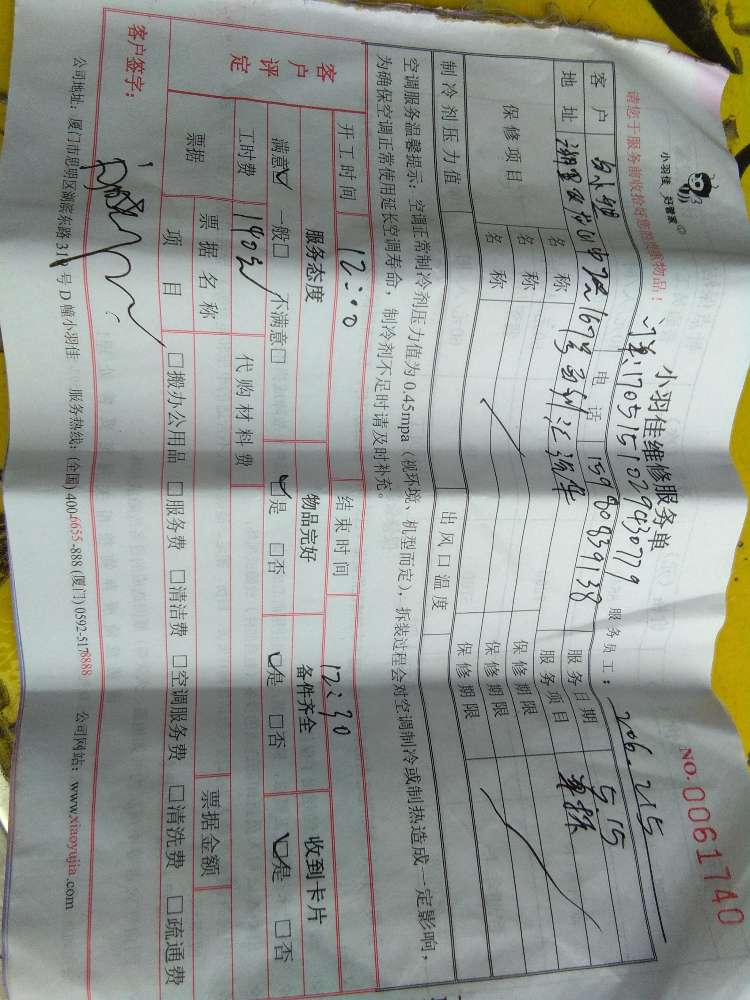 小羽佳 好管家
小羽佳维修服务单
NO.0061740
请您于服务前收拾好您的贵重物品!
订单:1705151029430779
服务员工: 206.215
客户
电话 15980839138
服务日期 5.15
地址
服务项目 单拆
保修项目
名称
保修期限
名称
保修期限
名称
保修期限
制冷剂压力值
出风口温度
空调服务温馨提示:空调正常制冷剂压力值为0.45mpa(视环境、机型而定),拆装过程会对空调制冷或制热造成一定影响,
为确保空调正常使用延长空调寿命,制冷剂不足时请及时补充。
开工时间 12:00
结束时间 12:30
客户评定
服务态度
物品完好
备件齐全
收到卡片
满意☑ 一般□ 不满意□
☑是 □否
☑是 □否
☑是 □否
工时费 140元
代购材料费
票据
票据名称
票据金额
项目
□搬办公用品 □服务费 □清洁费 □空调服务费 □清洗费 □疏通费
客户签字:
公司地址:厦门市思明区湖滨东路319号D幢小羽佳 服务热线:(全国)400-6655-888(厦门)0592-5178888 公司网站:www.xiaoyujia.com